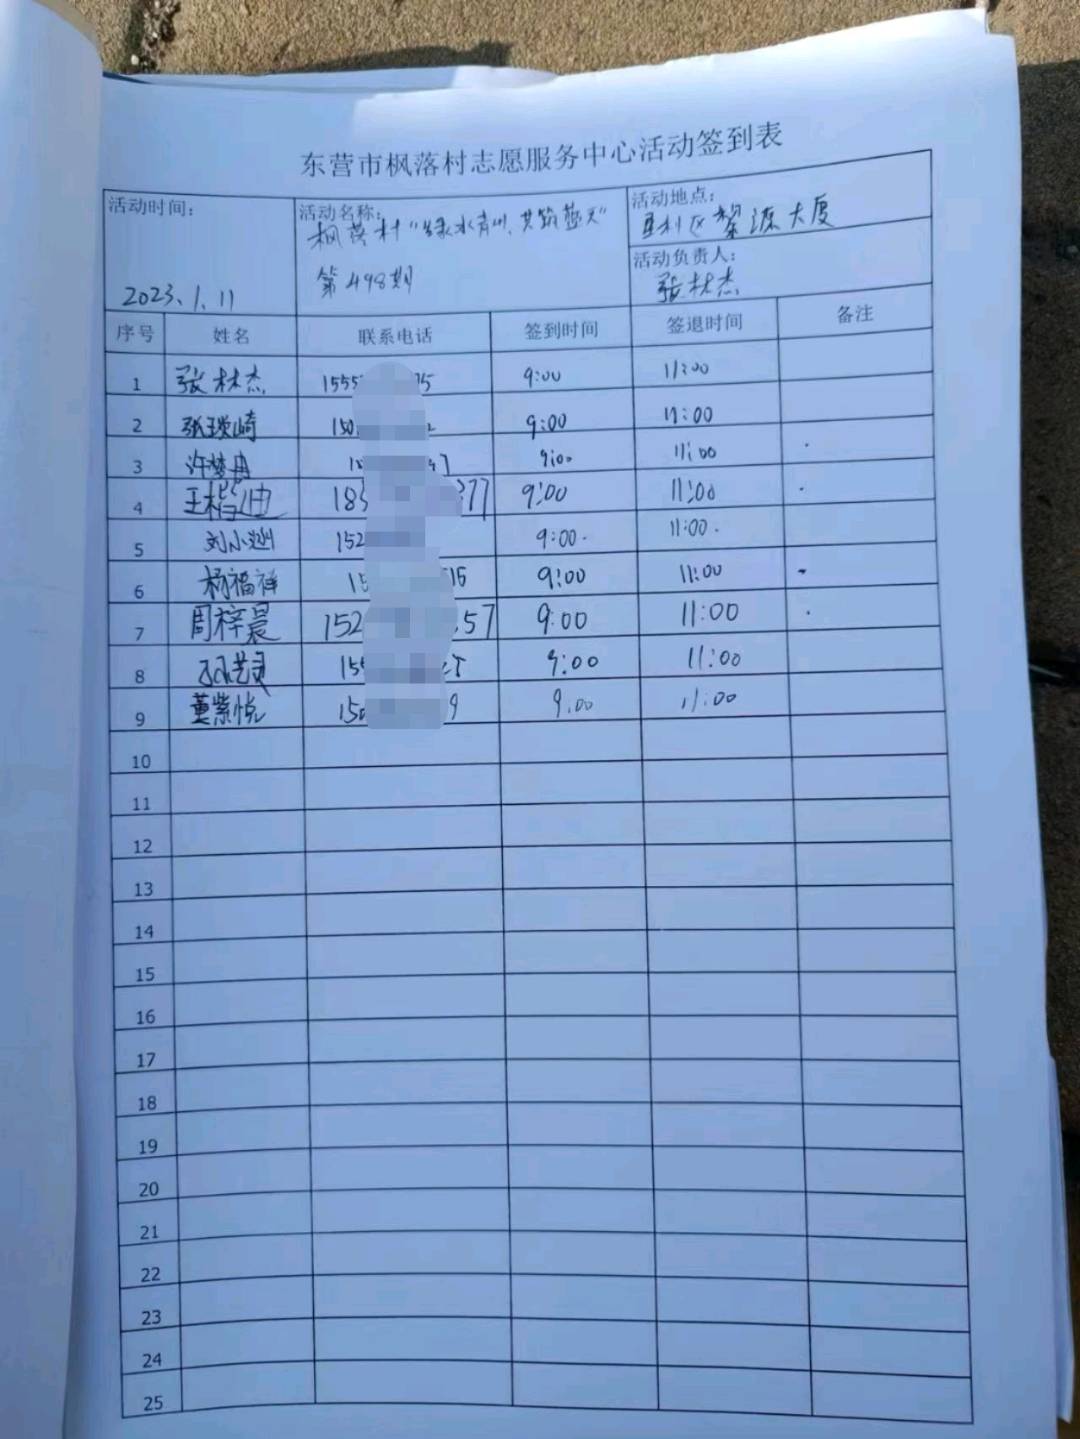 东营市枫落村志愿服务中心活动签到表
活动时间：
2023.1.11
活动名称：
枫落村"绿水青山、共筑蓝天"
第498期
活动地点：
垦利区黎源大厦
活动负责人：
张林杰
序号 姓名 联系电话 签到时间 签退时间 备注
1 张林杰 155 75 9:00 11:00
2 150 9:00 11:00
3 许梦丹 7 9:00 11:00
4 王楷迪 18 77 9:00 11:00
5 刘小 152 9:00 11:00
6 杨福祥 15 15 9:00 11:00
7 周梓晨 152 57 9:00 11:00
8 155 9:00 11:00
9 董紫悦 150 9 9:00 11:00
10
11
12
13
14
15
16
17
18
19
20
21
22
23
24
25